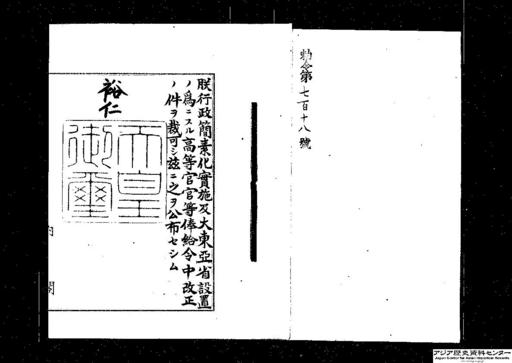 勅令第七百十八號
朕行政簡素化實施及大東亞省設置
ノ爲ニスル高等官官等俸給令中改正
ノ件ヲ裁可シ玆ニ之ヲ公布セシム
裕仁
天皇
御璽
内閣
アジア歴史資料センター
Japan Center for Asian Historical Records